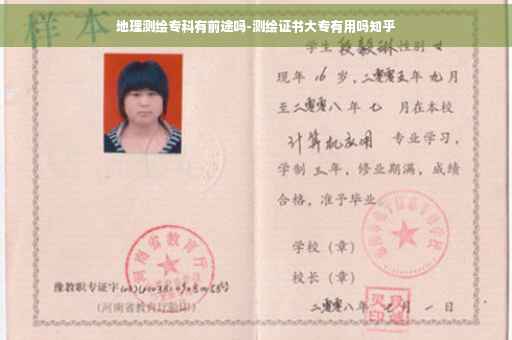 地理测绘专科有前途吗-测绘证书大专有用吗知乎
样本
学生 段毅琳 性别 女
现年 16 岁，二零零五年 九 月
至二零零八年 七 月在本校
计算机应用 专业学习，
学制 三 年，修业期满，成绩
合格，准予毕业
学校（章）
校长（章）
二零零八年 七 月 一 日
河南省教育厅
豫教职专证字
（河南省教育厅验印）